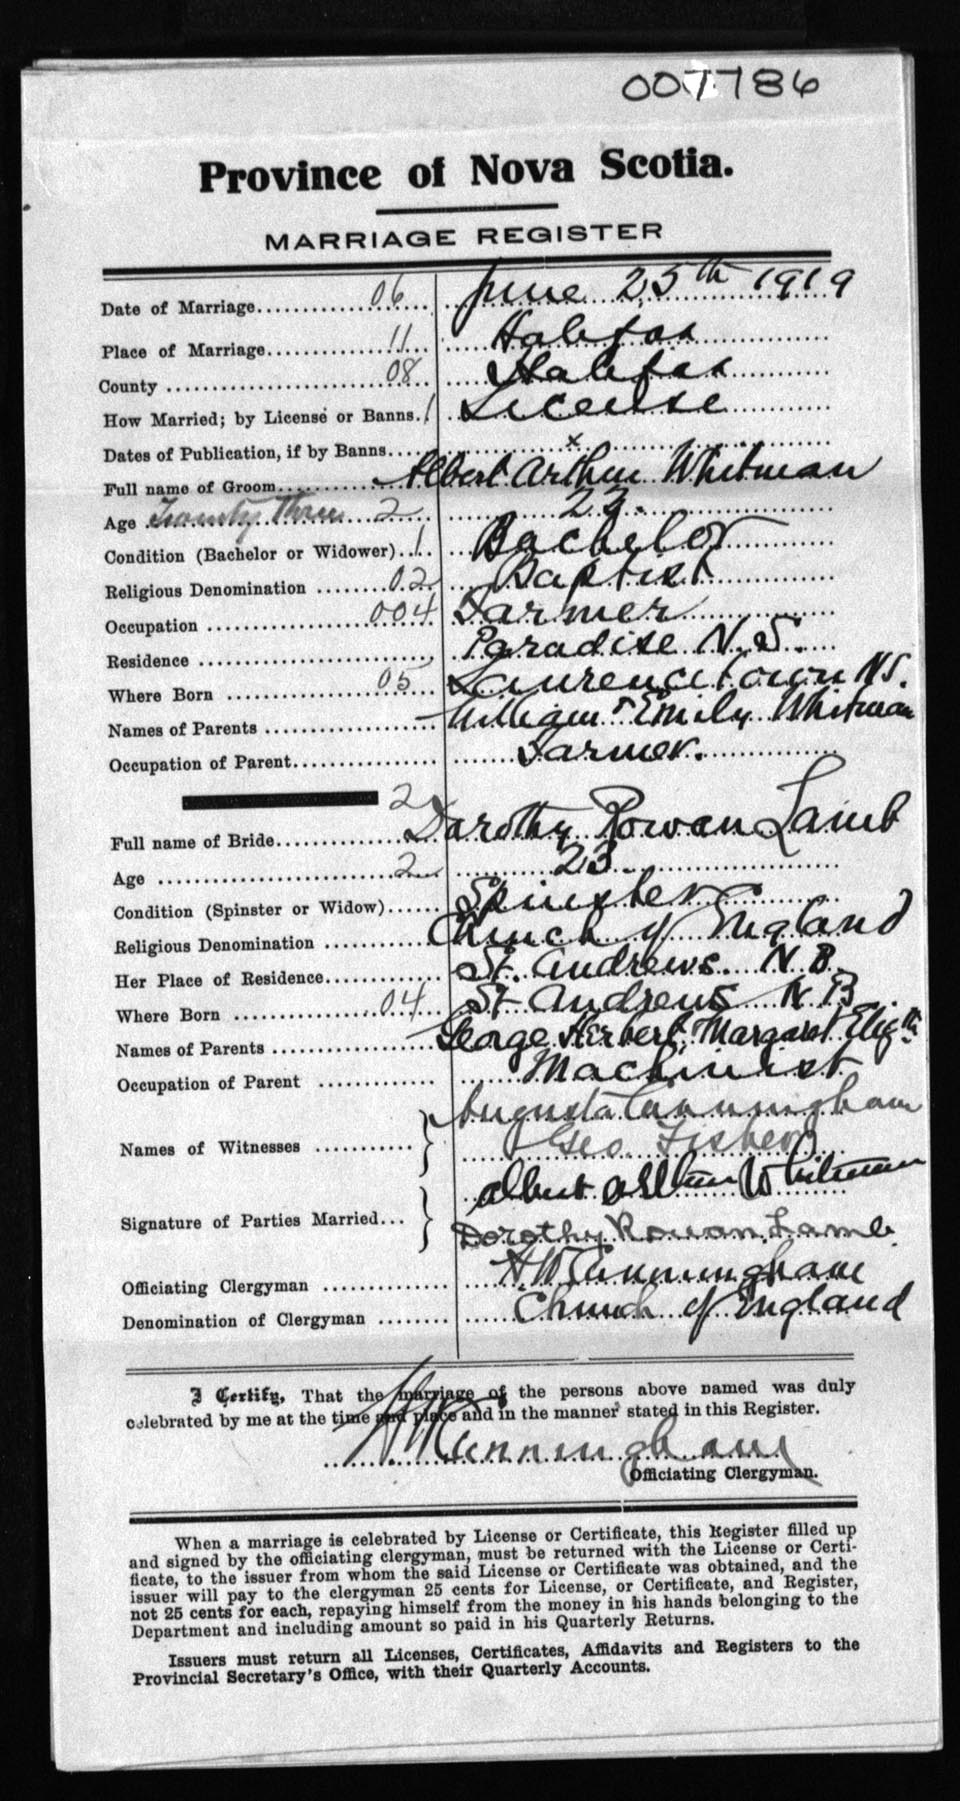 007786
Province of Nova Scotia.
MARRIAGE REGISTER
Date of Marriage 06 June 25th 1919
Place of Marriage 11 Halifax
County 08 Halifax
How Married; by License or Banns. 1 License
Dates of Publication, if by Banns x
Full name of Groom Albert Arthur Whitman
Age Twenty Three 2 23.
Condition (Bachelor or Widower) 1 Bachelor
Religious Denomination 02 Baptist
Occupation 004 Farmer
Residence Paradise N.S.
Where Born 05 Laurencetown NS.
Names of Parents William & Emily Whitman
Occupation of Parent Farmer.
2
Full name of Bride Dorothy Rowan Lamb
Age 2 23
Condition (Spinster or Widow) Spinster
Religious Denomination Church of England
Her Place of Residence St. Andrews. N.B.
Where Born 04 St Andrews N.B.
Names of Parents George Herbert, Margaret Elizth
Occupation of Parent Machinist
Names of Witnesses Augusta Cunningham
Geo. Fisher
Signature of Parties Married Albert Arthur Whitman
Dorothy Rowan Lamb.
Officiating Clergyman H W Cunningham
Denomination of Clergyman Church of England
I Certify, That the marriage of the persons above named was duly
celebrated by me at the time and place and in the manner stated in this Register.
H W Cunningham
Officiating Clergyman.
When a marriage is celebrated by License or Certificate, this Register filled up
and signed by the officiating clergyman, must be returned with the License or Certi-
ficate, to the issuer from whom the said License or Certificate was obtained, and the
issuer will pay to the clergyman 25 cents for License, or Certificate, and Register,
not 25 cents for each, repaying himself from the money in his hands belonging to the
Department and including amount so paid in his Quarterly Returns.
Issuers must return all Licenses, Certificates, Affidavits and Registers to the
Provincial Secretary's Office, with their Quarterly Accounts.